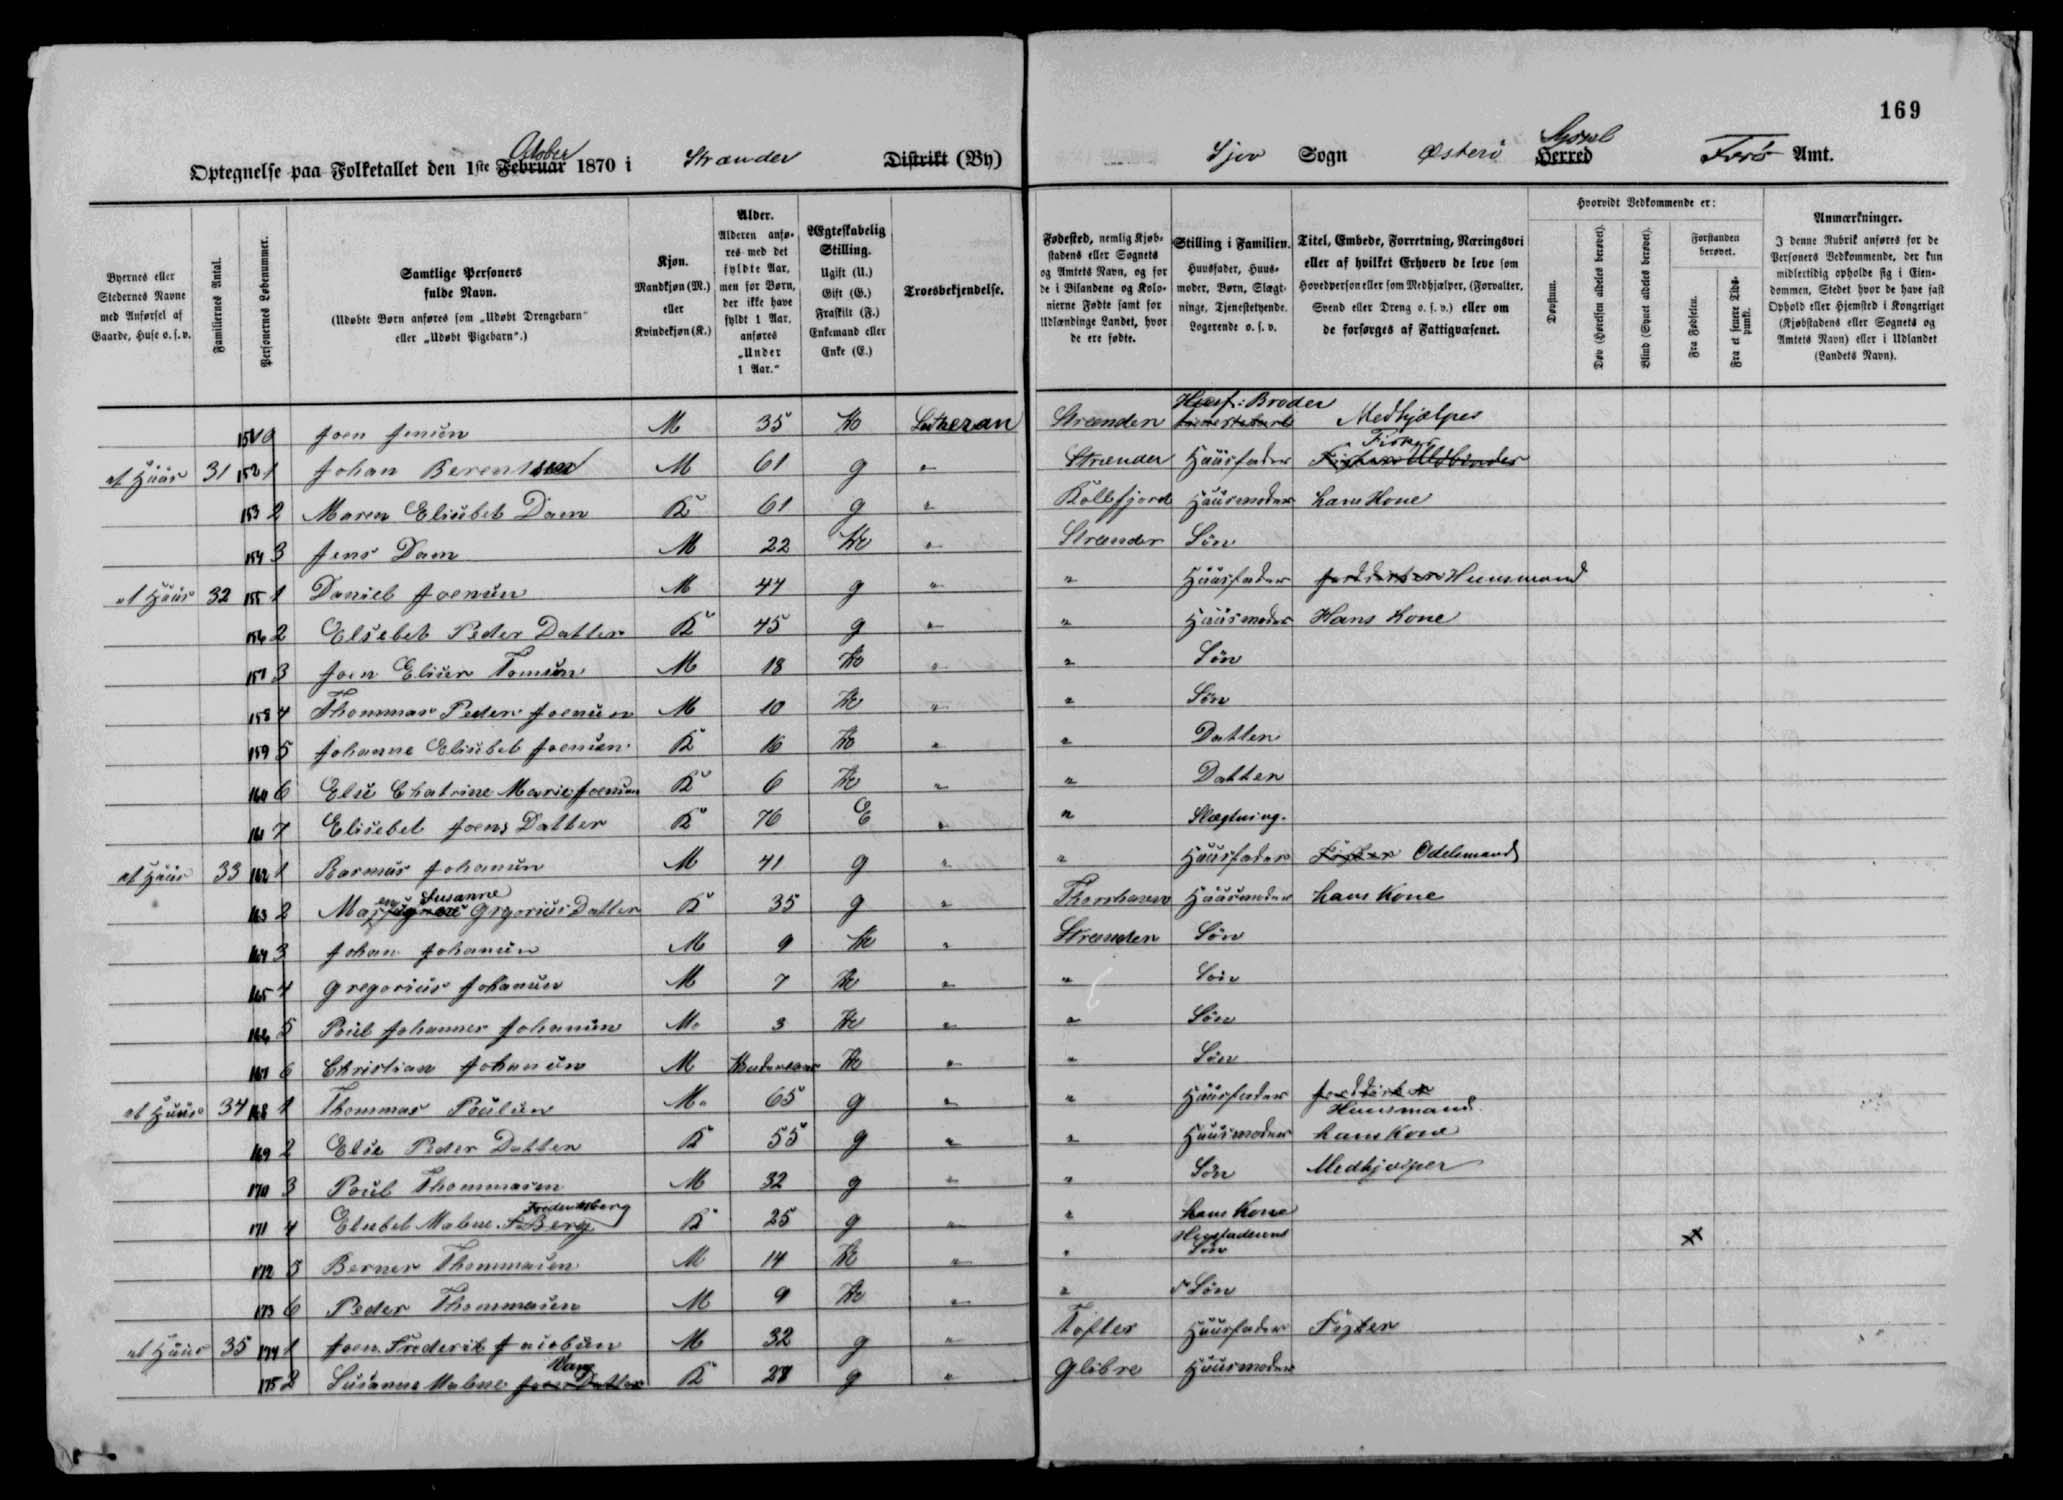 169
Optegnelse paa Folketallet den 1ste Februar October 1870 i Strænder Distrikt (By)
Sjov Sogn Østerö Herred Syssel Færö Amt.
Byernes eller Stedernes Navne med Anførsel af Gaarde, Huse o. s. v.
Familiernes Antal.
Personernes Løbenummer.
Samtlige Personers fulde Navn.
(Udøbte Børn anføres som „Udøbt Drengebarn“ eller „Udøbt Pigebarn“.)
Kjøn. Mandkjøn (M.) eller Kvindekjøn (K.)
Alder. Alderen anføres med det fyldte Aar, men for Børn, der ikke have fyldt 1 Aar, anføres „Under 1 Aar.“
Ægteskabelig Stilling. Ugift (U.) Gift (G.) Fraskilt (F.) Enkemand eller Enke (E.)
Troesbekjendelse.
Fødested, nemlig Kjøbstadens eller Sognets og Amtets Navn, og for de i Bilandene og Kolonierne Fødte samt for Udlændinge Landet, hvor de ere fødte.
Stilling i Familien. Huusfader, Huusmoder, Børn, Slægtninge, Tjenestetyende, Logerende o. s. v.
Titel, Embede, Forretning, Næringsvei eller af hvilket Erhverv de leve som Hovedperson eller som Medhjælper, (Forvalter, Svend eller Dreng o. s. v.) eller om de forsørges af Fattigvæsenet.
Hvorvidt Vedkommende er:
Døvstum.
Døv (Hørelsen aldeles berøvet).
Blind (Synet aldeles berøvet).
Forstanden berøvet.
Fra Fødselen.
Fra et senere Tidspunkt.
Anmærkninger.
I denne Rubrik anføres for de Personers Vedkommende, der kun midlertidig opholde sig i Eiendommen, Stedet hvor de have fast Ophold eller Hjemsted i Kongeriget (Kjøbstadens eller Sognets og Amtets Navn) eller i Udlandet (Landets Navn).
151 Joen Jensün M 35 U Lutheran Strænder Huusf: Broder Medhjælper
et Hüüs 31 152 1 Johan Berentsen M 61 g " Strænder Hüüsfader Fisker Uldbinder Fisker
153 2 Maren Elisübet Dam K 61 g " Kollefjord Hüüsmoder hans Kone
154 3 Jens Dam M 22 U " Strænder Sön
et Hüüs 32 155 1 Daniel Joensün M 44 g " " Hüüsfader Huusmand
156 2 Elsebet Peder Datter K 45 g " " Hüüsmoder Hans Kone
157 3 Joen Eliser Tomsün M 18 U " " Sön
158 4 Thommas Peder Joensün M 10 U " " Sön
159 5 Johanne Elisübet Joensün K 16 U " " Datter
160 6 Else Chatrine Marie Joensün K 6 U " " Datter
161 7 Elisebet Joens Datter K 76 E " " Slægtning.
et Hüüs 33 162 1 Rasmus Johansün M 41 g " " Hüüsfader Fisker Odelsmand
163 2 Maren Susanne Grgorius Datter K 35 g " Thorshavn Hüüsmoder hans Kone
164 3 Johan Johansün M 9 U " Strænder Sön
165 4 Gregorius Johansün M 7 U " " Sön
166 5 Poül Johannes Johansün M. 3 U " " Sön
167 6 Christian Johansün M Under 1 aar U " " Sön
et Hüüs 34 168 1 Thommas Poülsün M. 65 g " " Hüüsfader Huusmand
169 2 Else Peder Datter K 55 g " " Hüüsmoder hans Kone
170 3 Poül Thommasen M 32 g " " Sön Medhjælper
171 4 Elsebet Malene F. Berg Frederiksberg K 25 g " " hans Kone
172 5 Berner Thommasen M 14 U " " Huusfaderens Sön x
173 6 Peder Thommasen M 9 U " " Sön
et Hüüs 35 174 1 Joen Frederik Jacobsün M 32 g " Tofter Hüüsfader Fisker
175 2 Susanne Malene Joens Datter K 28 g " Glibre Hüüsmoder